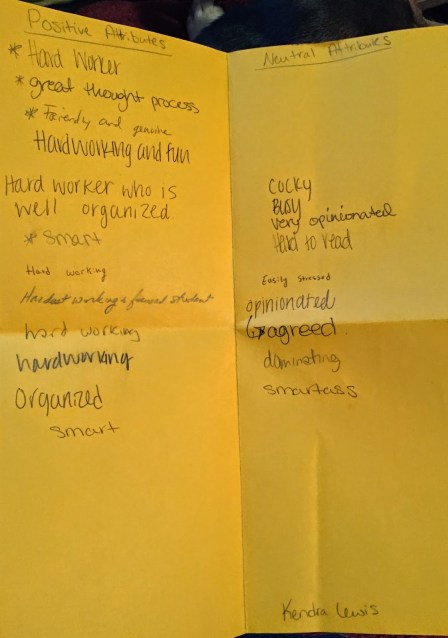 Positive Attributes
* Hard Worker
* great thought process
* Friendly and genuine
Hardworking and fun
Hard worker who is
well organized.
* Smart
Hard working
Hardest working & focused student
hard working
hardworking
Organized
smart
Neutral Attributes
cocky
Busy
very opinionated
Hard to read
Easily stressed
opinionated
agreed.
dominating
smartass
Kendra Lewis